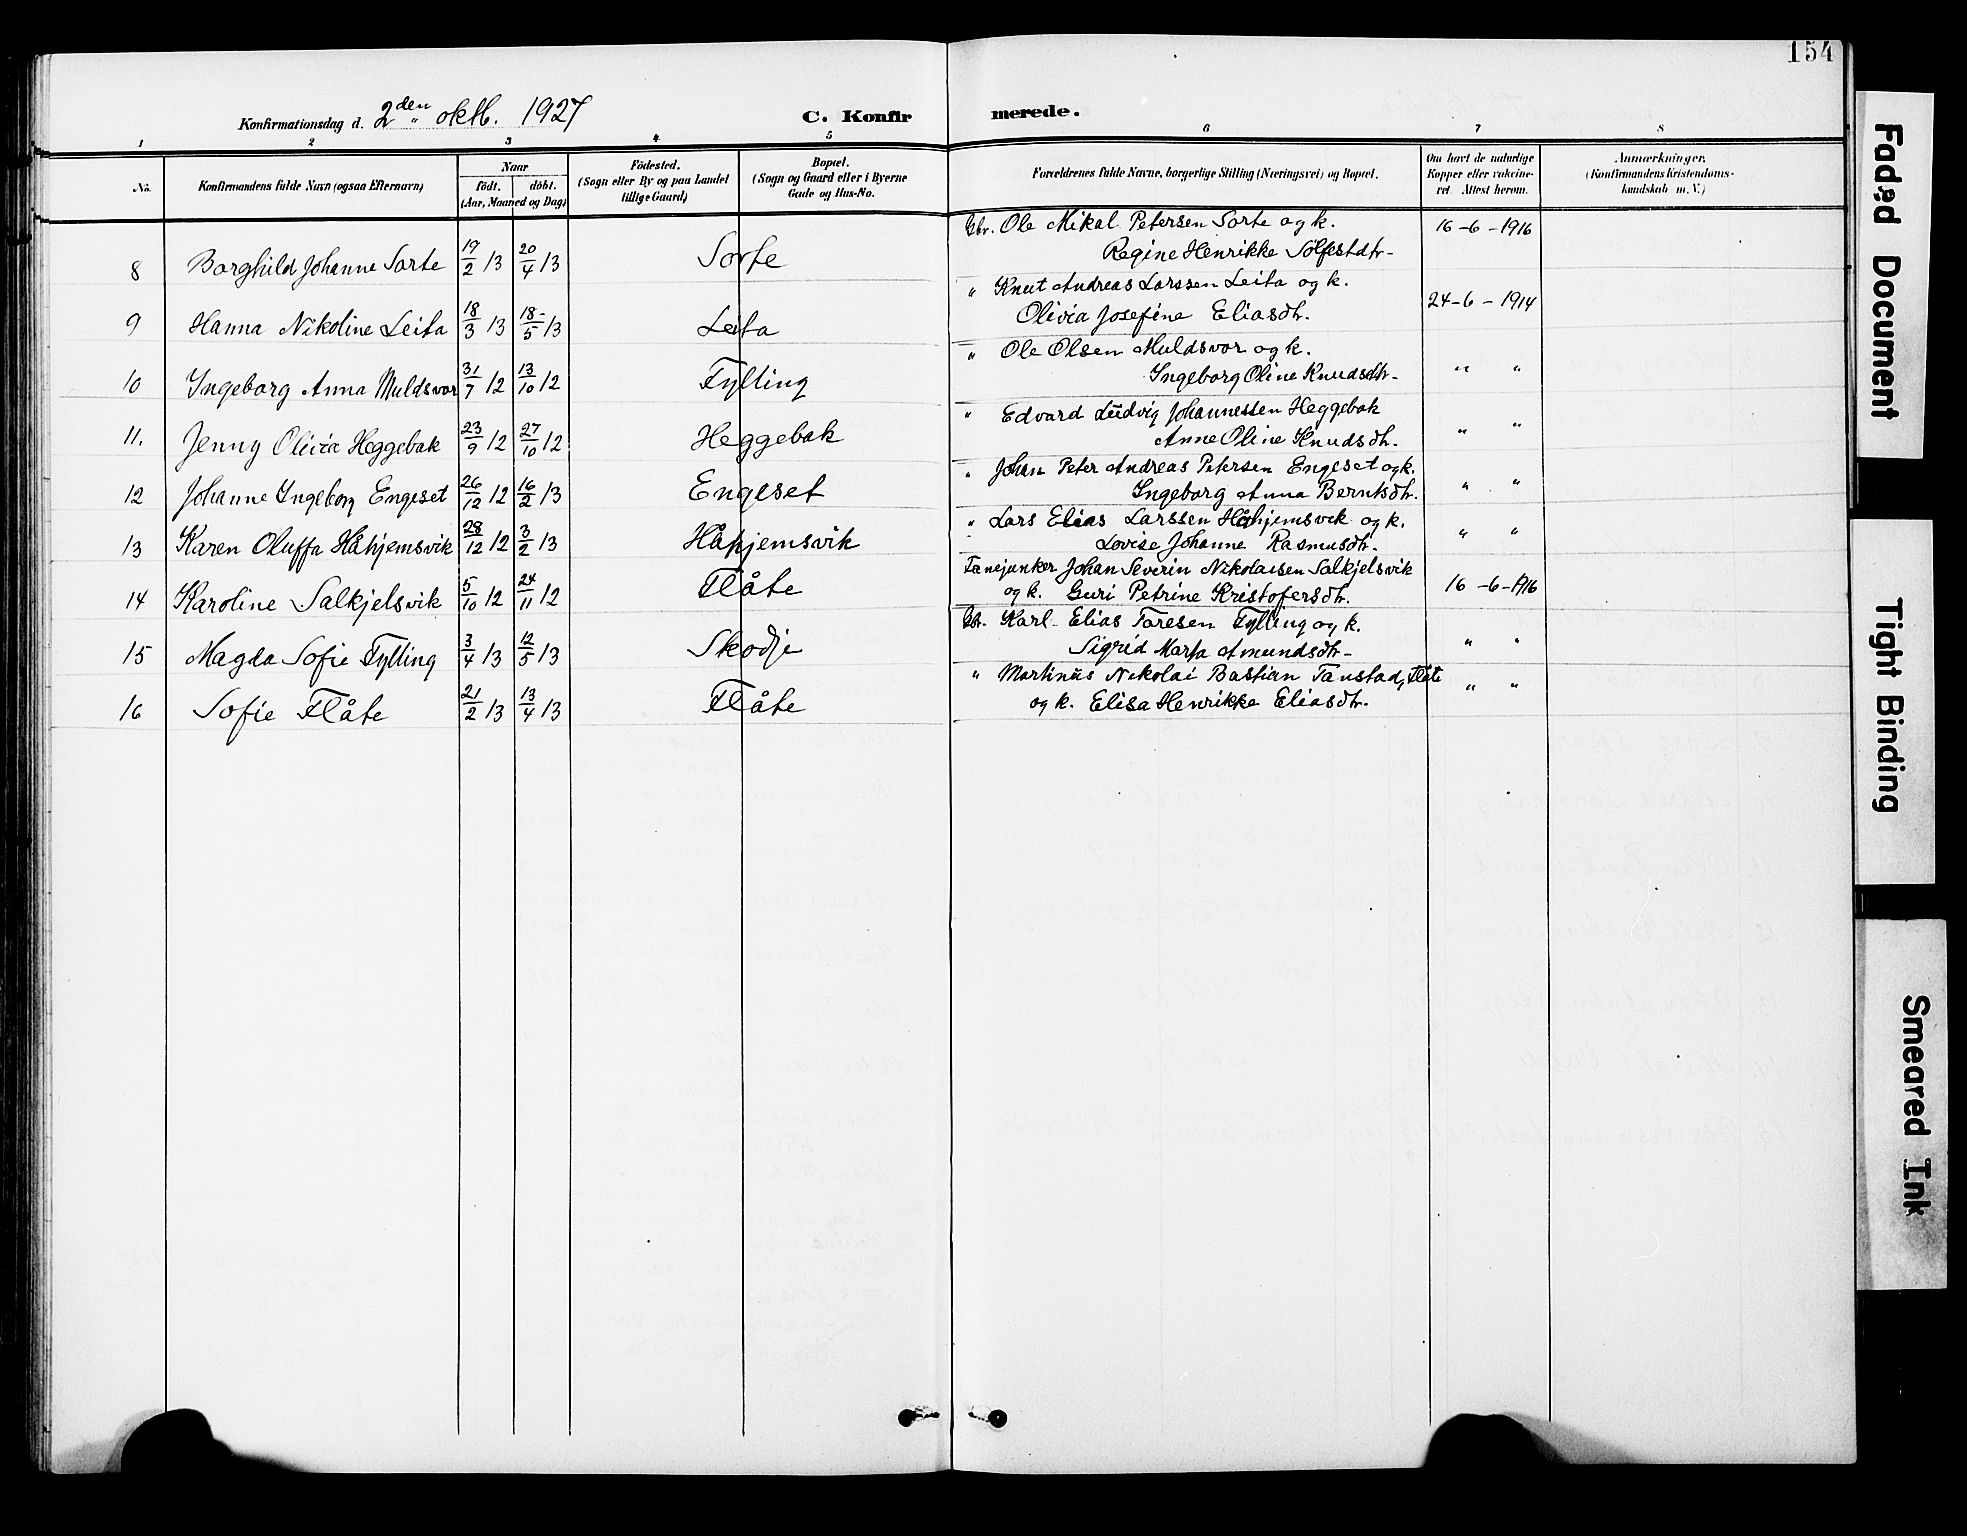 154
Konfirmationsdag d. 2den oktb. 1927
C. Konfirmerede.
1 2 3 4 5 6 7 8
No.
Konfirmandens fulde Navn (ogsaa Efternavn)
Naar
födt. döbt.
(Aar, Maaned og Dag)
Födested.
(Sogn eller By og paa Landet
tillige Gaard)
Bopæl.
(Sogn og Gaard eller i Byerne
Gade og Hus-No.
Forældrenes fulde Navne, borgerlige Stilling (Næringsvei) og Bopæl.
Om havt de naturlige
Kopper eller vakcine-
ret. Attest herom.
Anmærkninger.
(Konfirmandens Kristendoms-
kundskab m. V.)
8 Borghild Johanne Sorte 19/2 13 20/4 13 Sorte Gbr. Ole Mikal Petersen Sorte og k. 16-6-1916
Regine Henrikke Sölfestdtr-
9 Hanna Nikoline Leita 18/3 13 18/5 13 Leita " Knut Andreas Larssen Leita og k.
Olivia Josefine Eliasdtr. 24-6-1914
10 Ingeborg Anna Muldsvor 31/7 12 13/10 12 Fylling " Ole Olsen Muldsvor og k.
Ingeborg Oline Knudsdtr- " "
11. Jenny Olivia Heggebak 23/9 12 27/10 12 Heggebak " Edvard Ludvig Johannessen Heggebak
Anne Oline Knudsdtr. " "
12 Johanne Ingeborg Engeset 26/12 12 16/2 13 Engeset " Johan Peter Andreas Petersen Engeset og k.
Ingeborg Anna Berntsdtr. " "
13 Karen Oluffa Håhjemsvik 28/12 12 3/2 13 Håhjemsvik " Lars Elias Larssen Håhjemsvik og k.
Lovise Johanne Rasmusdtr. " "
14 Karoline Salkjelsvik 5/10 12 24/11 12 Flåte Fanejunker Johan Severin Nikolaisen Salkjelsvik
og k. Guri Petrine Kristofersdtr. 16-6-1916
15 Magda Sofie Fylling 3/4 13 12/5 13 Skodje Gbr. Karl Elias Taresen Fylling og k.
Sigrid Marta Amundsdtr- " "
16 Sofie Flåte 21/2 13 13/4 13 Flåte " Martinus Nikolai Bastian Tanstad, Flåte
og k. Elisa Henrikke Eliasdtr. " "
Faded Document
Tight Binding
Smeared Ink